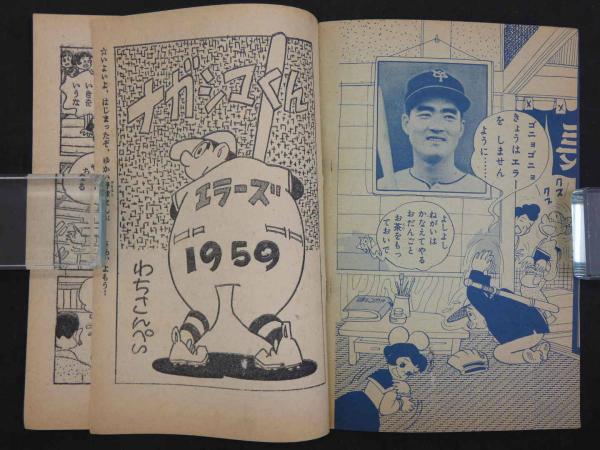 ナガシマくん
エラーズ
1959
わちさんぺい
☆いよいよ、はじまったぞ、ゆか
よもう…
ゴニョゴニョ
きょうはエラー
を しません
ように……
よしよし
ねがいは
かなえてやる
おだんごと
お茶をもっ
ておいで
ミーン
クス
クス
いきを
いうな